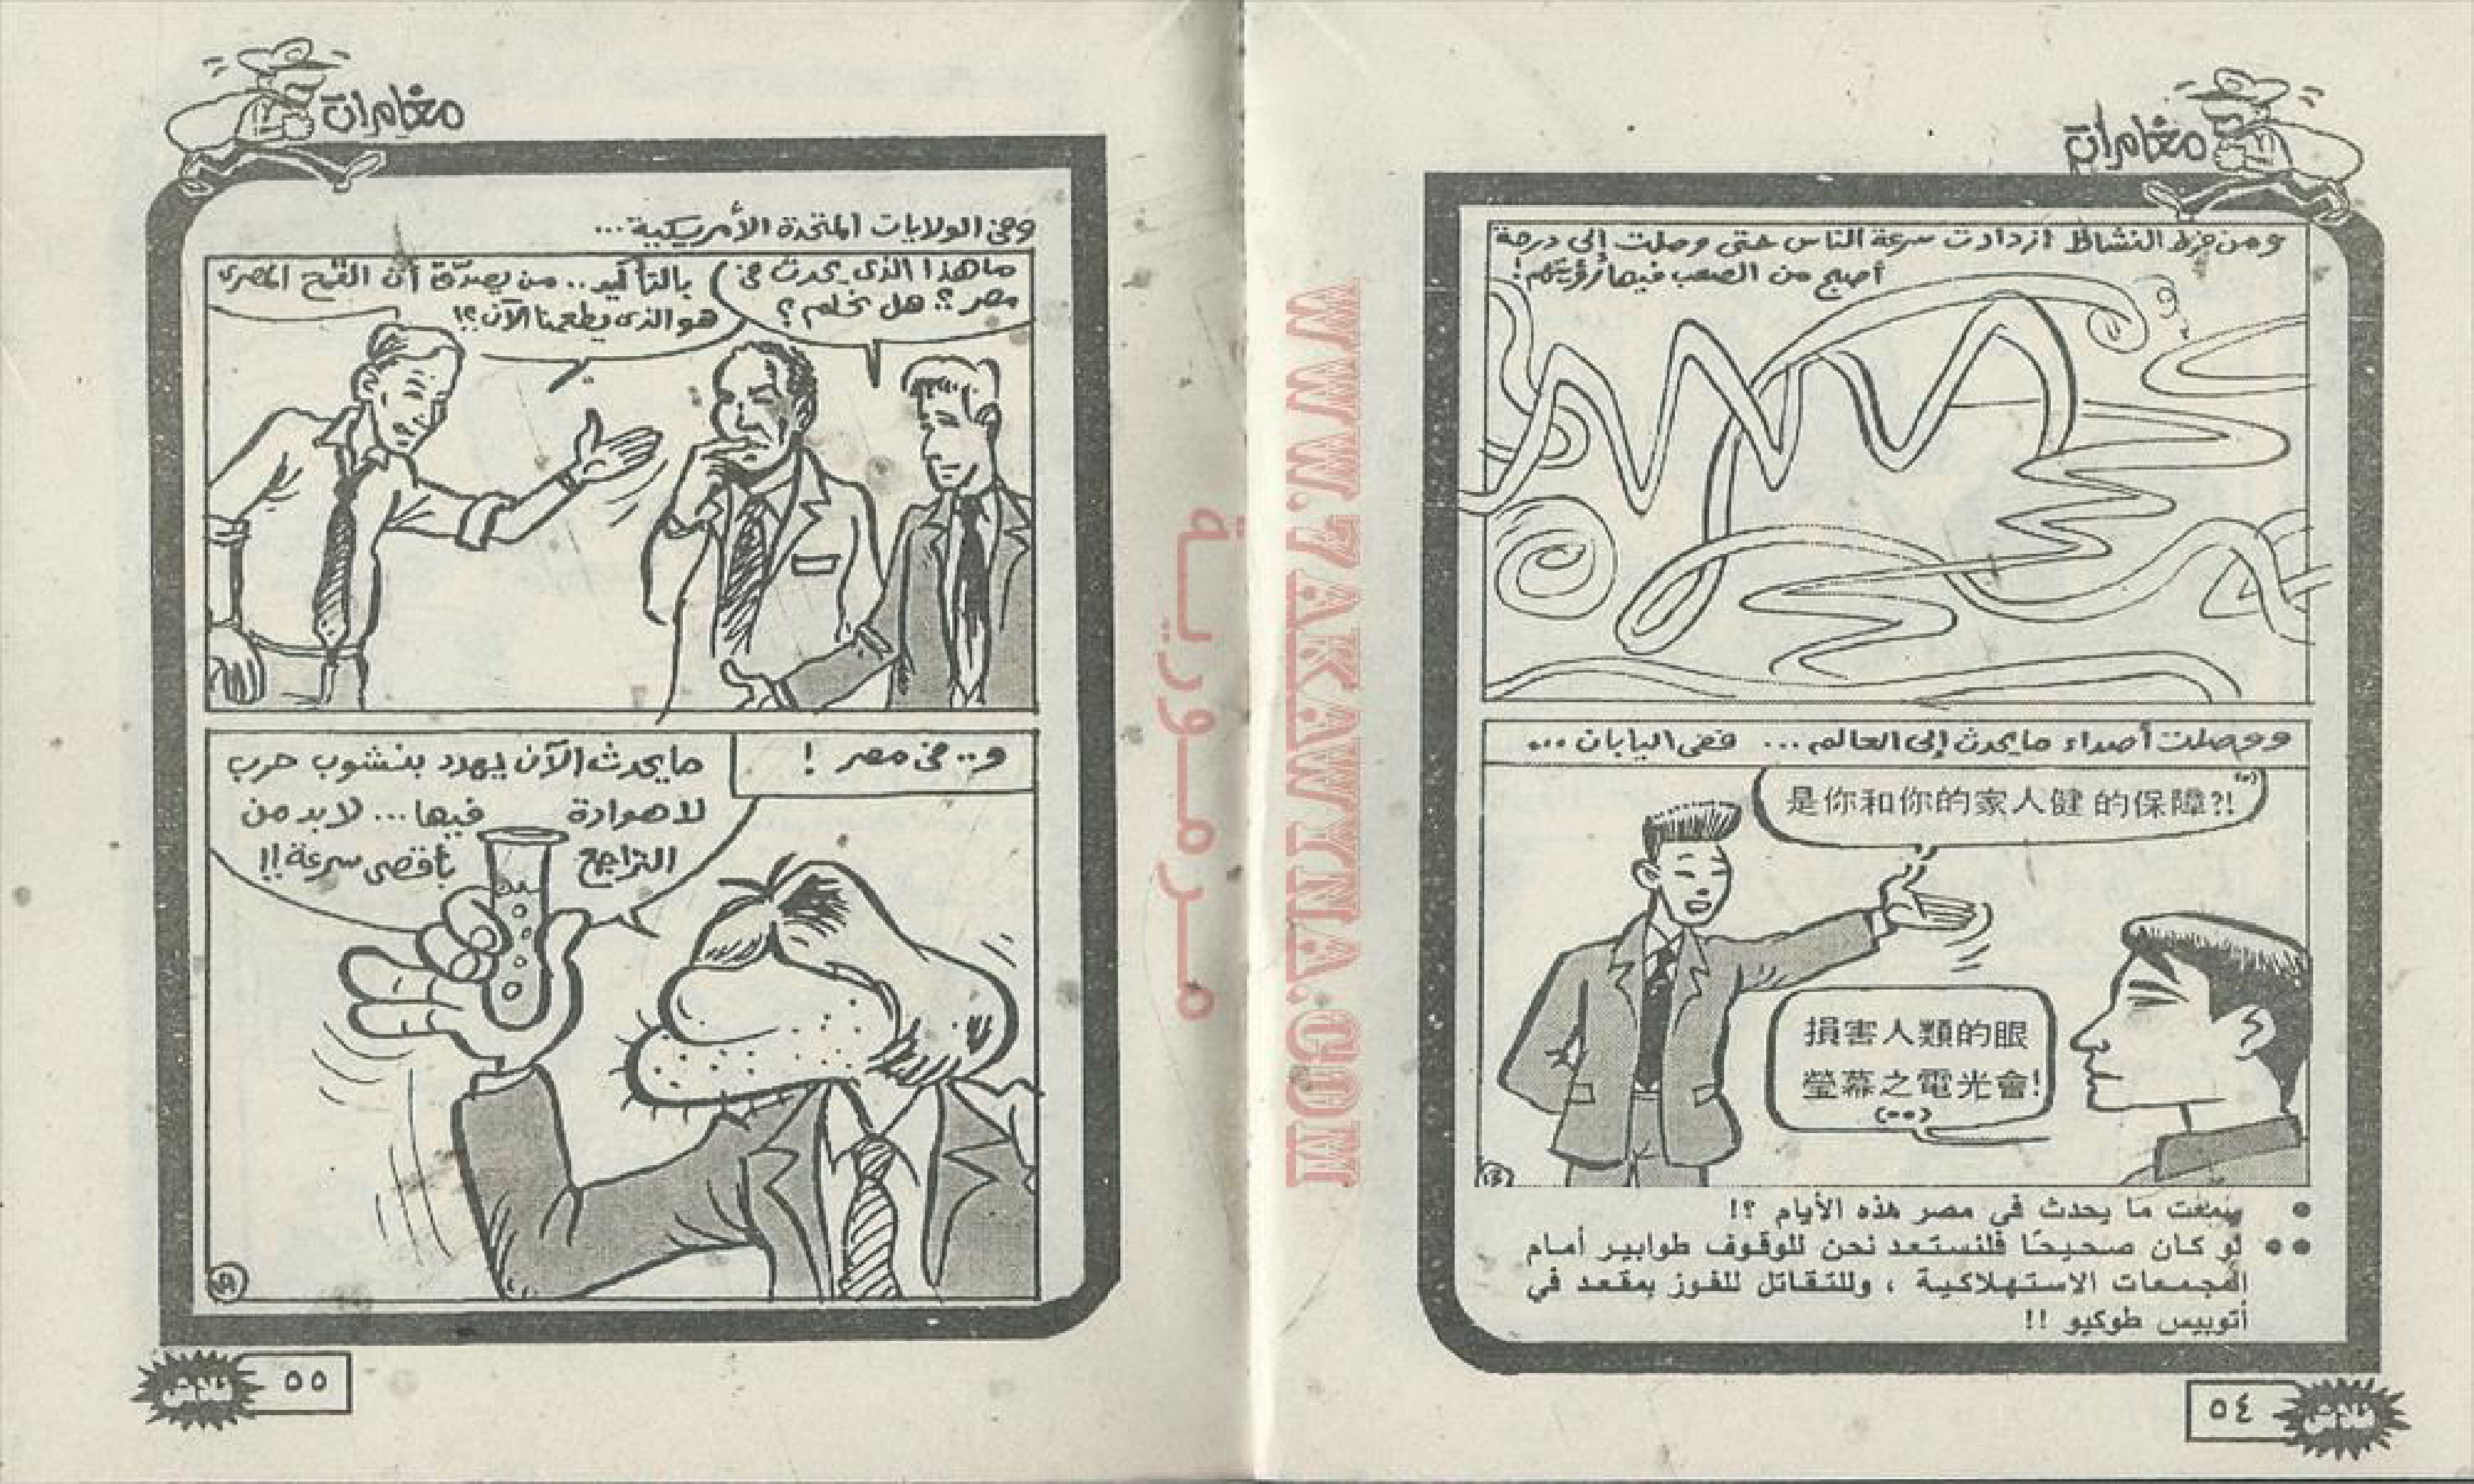 مغامرات
ومن فرط النشاط ازدادت سرعة الناس حتى وصلت إلى درجة
أصبح من الصعب فيها رؤيتهم!
ووصلت أصداء ما يحدث إلى العالم... ففى اليابان...
(*)
是你和你的家人健的保障?!
損害人類的眼
螢幕之電光會!
(**)
• سمعت ما يحدث في مصر هذه الأيام ؟!
•• لو كان صحيحًا فلنستعد نحن للوقوف طوابير أمام
المجمعات الاستهلاكية ، وللتقاتل للفوز بمقعد في
أتوبيس طوكيو !!
٥٤
مغامرات
وفى الولايات المتحدة الأمريكية...
ما هذا الذى يحدث فى
مصر؟؟ هل نحلم؟
بالتأكيد.. من يصدّق أن القمح المصرى
هو الذى يطعمنا الآن؟!
و.. فى مصر!
ما يحدث الآن يهدد بنشوب حرب
لا هوادة فيها... لابد من
التراجع بأقصى سرعة!!
٥٥
WWW.7AKAWYINA.COM
مرمورية